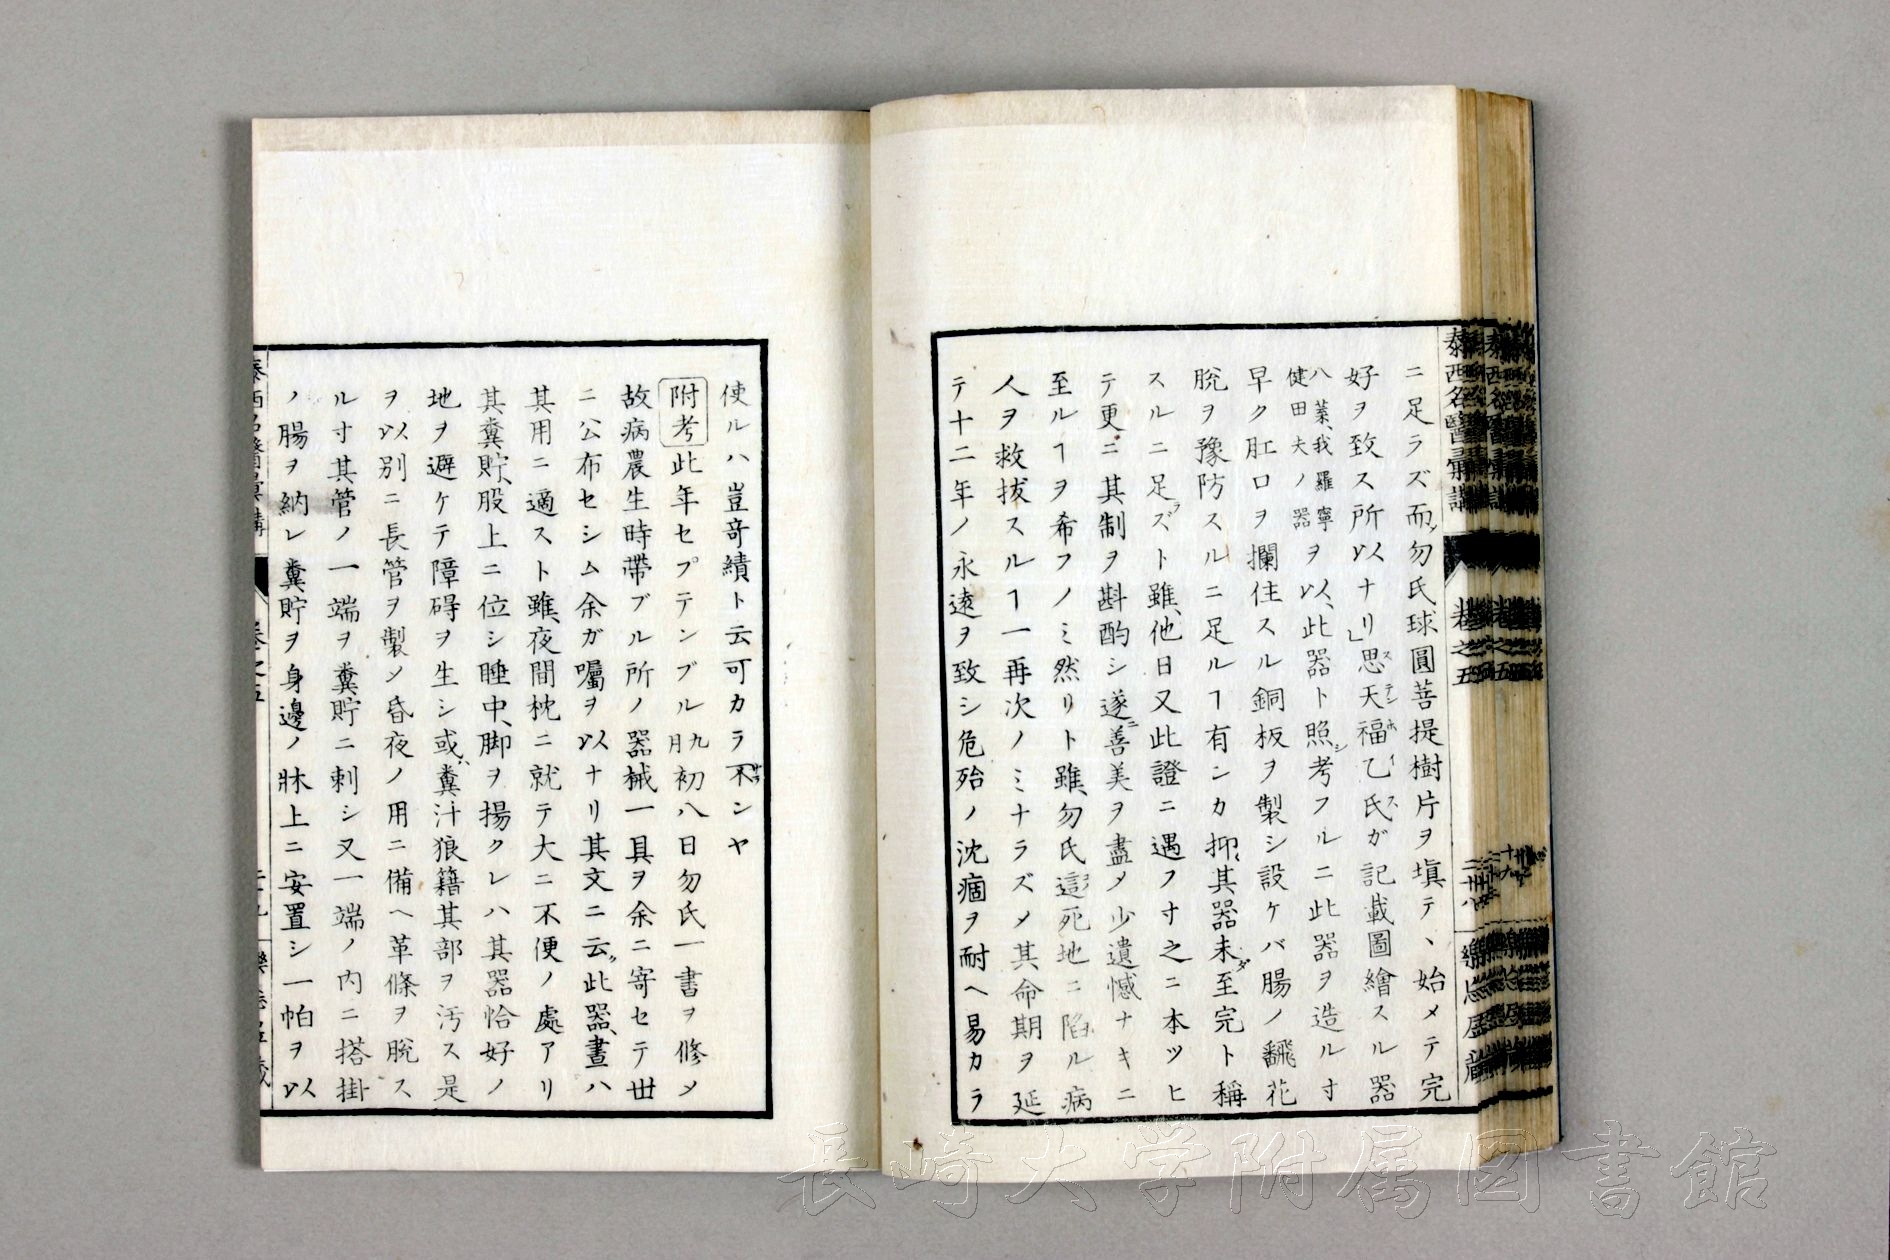 泰西名醫彙講
巻之五
二十八
樂志居藏
ニ足ラズ而ノ勿氏球圓菩提樹片ヲ塡テヽ始メテ完
好ヲ致ス所以ナリ」思天福乙氏ガ記載圖繪スル器
八葉、我羅寧健田夫ノ器ヲ以、此器ト照考フルニ此器ヲ造ルオ
早ク肛口ヲ攔住スル銅板ヲ製シ設ケバ腸ノ飜花
脫ヲ豫防スルニ足ルヿ有ンカ抑、其器未至完ト稱
スルニ足ズト雖、他日又此證ニ遇フ寸之ニ本ツヒ
テ更ニ其制ヲ斟酌シ遂善美ヲ盡メ少遺憾ナキニ
至ルヿヲ希フノミ然リト雖、勿氏這死地ニ陷ル病
人ヲ救拔スルヿ一再次ノミナラズメ其命期ヲ延
テ十二年ノ永遠ヲ致シ危殆ノ沈痼ヲ耐ヘ易カラ
使ルハ豈竒績ト云可カラ不ンヤ
附考 此年セプテンブル九月初八日勿氏一書ヲ修メ
故病農生時帶ブル所ノ器械一具ヲ余ニ寄セテ丗
ニ公布セシム余ガ囑ヲ以ナリ其文ニ云、此器、晝ハ
其用ニ適スト雖、夜間枕ニ就テ大ニ不便ノ處アリ
其糞貯、股上ニ位シ睡中、脚ヲ揚クレハ其器恰好ノ
地ヲ避ケテ障碍ヲ生シ或、糞汁狼籍其部ヲ汚ス是
ヲ以別ニ長管ヲ製メ昏夜ノ用ニ備ヘ革條ヲ脫ス
ル寸其管ノ一端ヲ糞貯ニ刺シ又一端ノ内ニ搭掛
ノ腸ヲ納レ糞貯ヲ身邊ノ牀上ニ安置シ一帕ヲ以
長崎大学附属図書館